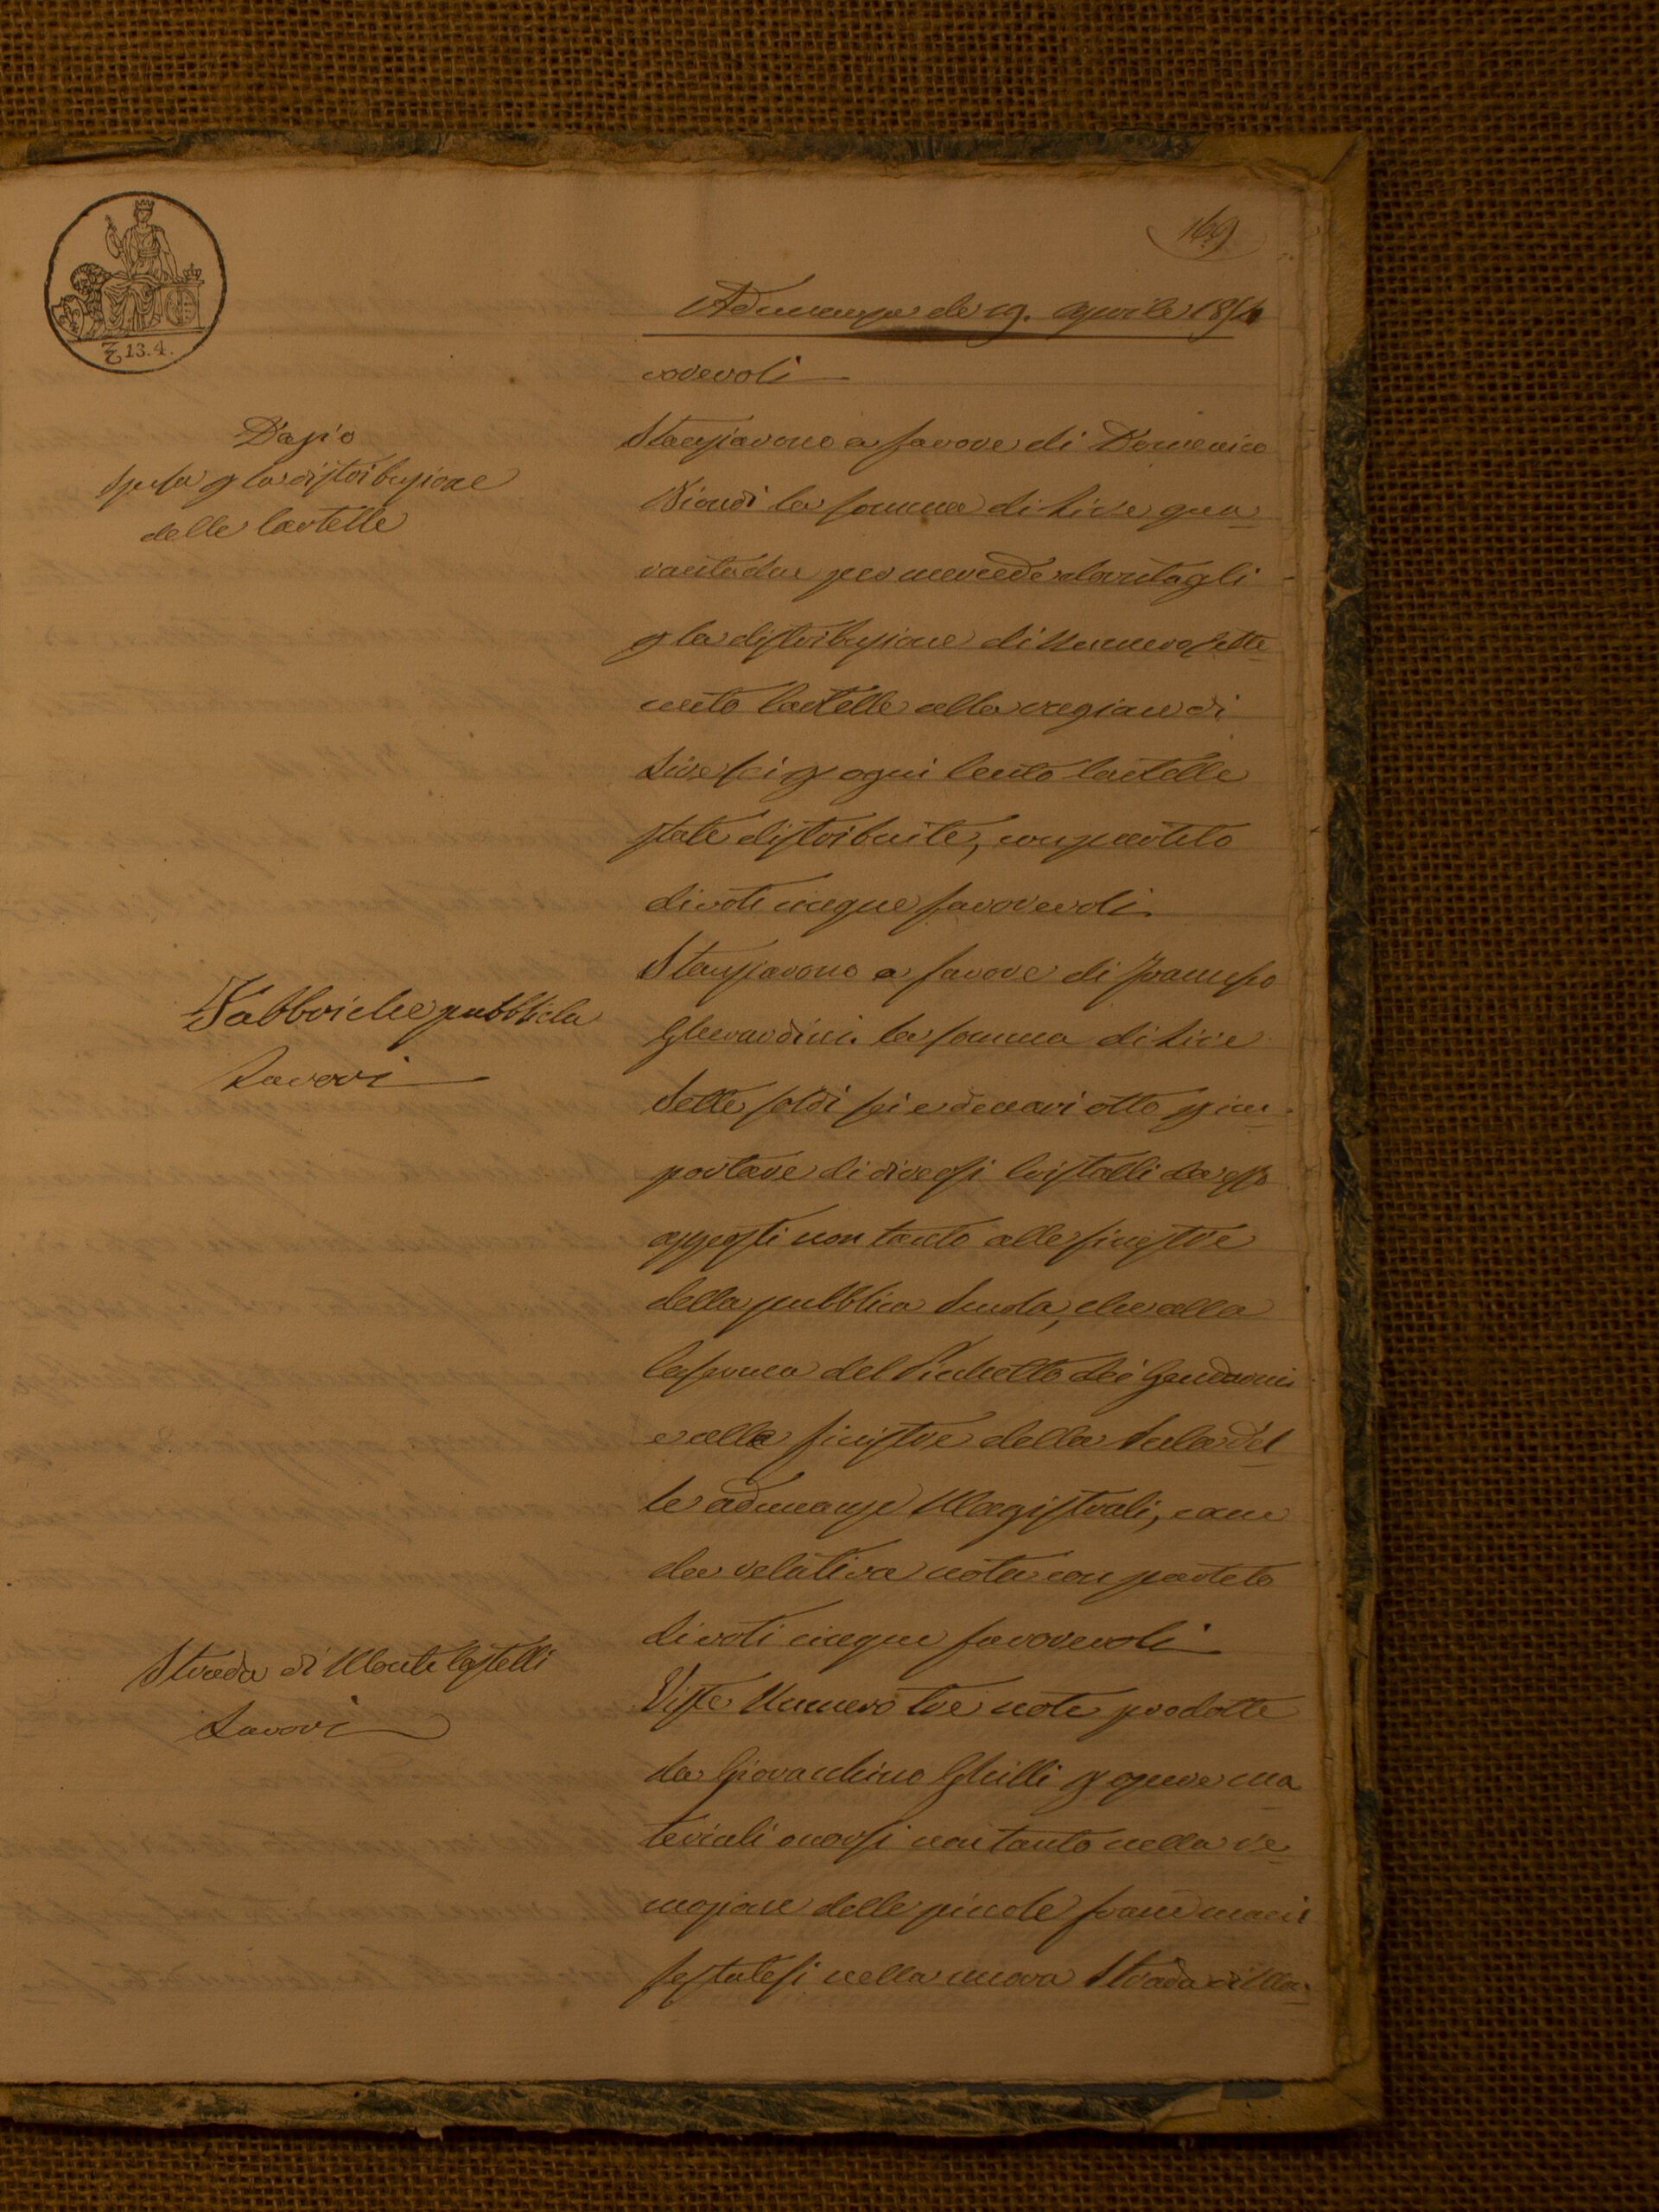 169
13.4.
Adunanza de 19. aprile 1854
rovevoli
Dazio
Spesa p la distribuzione
delle Cartelle
Stanziarono a favore di Domenico
Biondi la somma di Lire qua
rantadue per mercede dovutagli
p la distribuzione di Numero sette
cento Cartelle alla ragione di
Lire sei p ogni Cento Cartelle
state distribuite, con partito
di voti cinque favorevoli.
Fabbriche pubbliche
Lavori
Stanziarono a favore di Franceso
Gherardini la somma di Lire
Sette soldi sei e denari otto p im
portare di diversi Cristalli da esso
apposti non tanto alle finestre
della pubblica Scuola, che alla
Caserma del Picchetto dei Gendarmi
e alle finistre della Sala del
le adunanze Magistrali, come
da relativa nota con partito
di voti cinque favorevoli
Strada di Monte Castelli
Lavori
Viste Numero tre note prodotte
da Giovacchino Ghilli p opere ma
teriali occorsi non tanto nella re
mozione delle piccole frane mani
festatesi nella nuova Strada di Mon